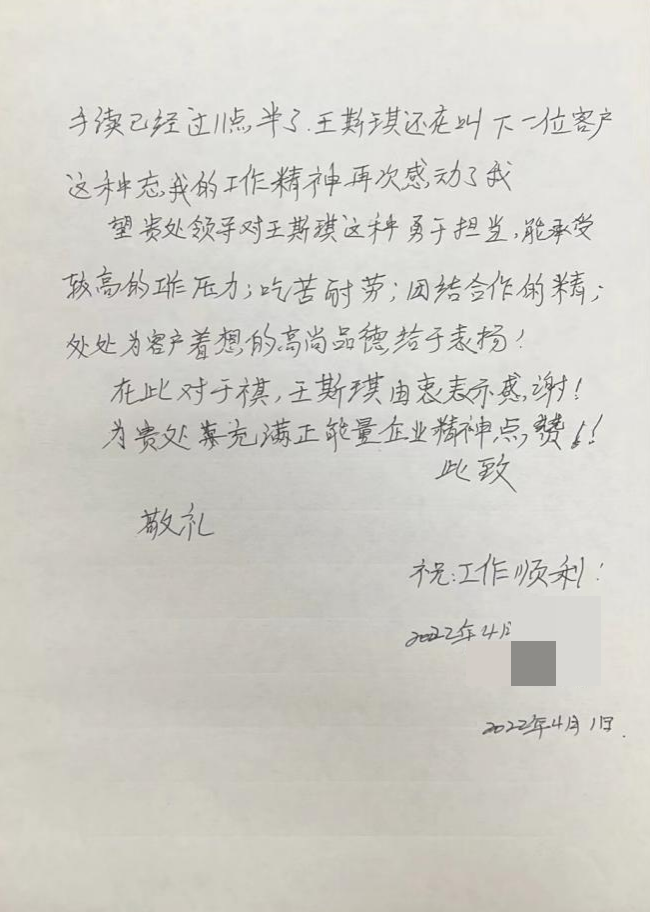 手续已经过11点半了.王斯琪还在叫下一位客户
这种忘我的工作精神再次感动了我
望贵处领导对王斯琪这种勇于担当,能承受
较高的工作压力;吃苦耐劳;团结合作的精;
处处为客户着想的高尚品德给于表扬!
在此对于祺,王斯琪由衷表示感谢!
为贵处充满正能量企业精神点赞!!
此致
敬礼
祝:工作顺利!
2022年4月
2022年4月1日.